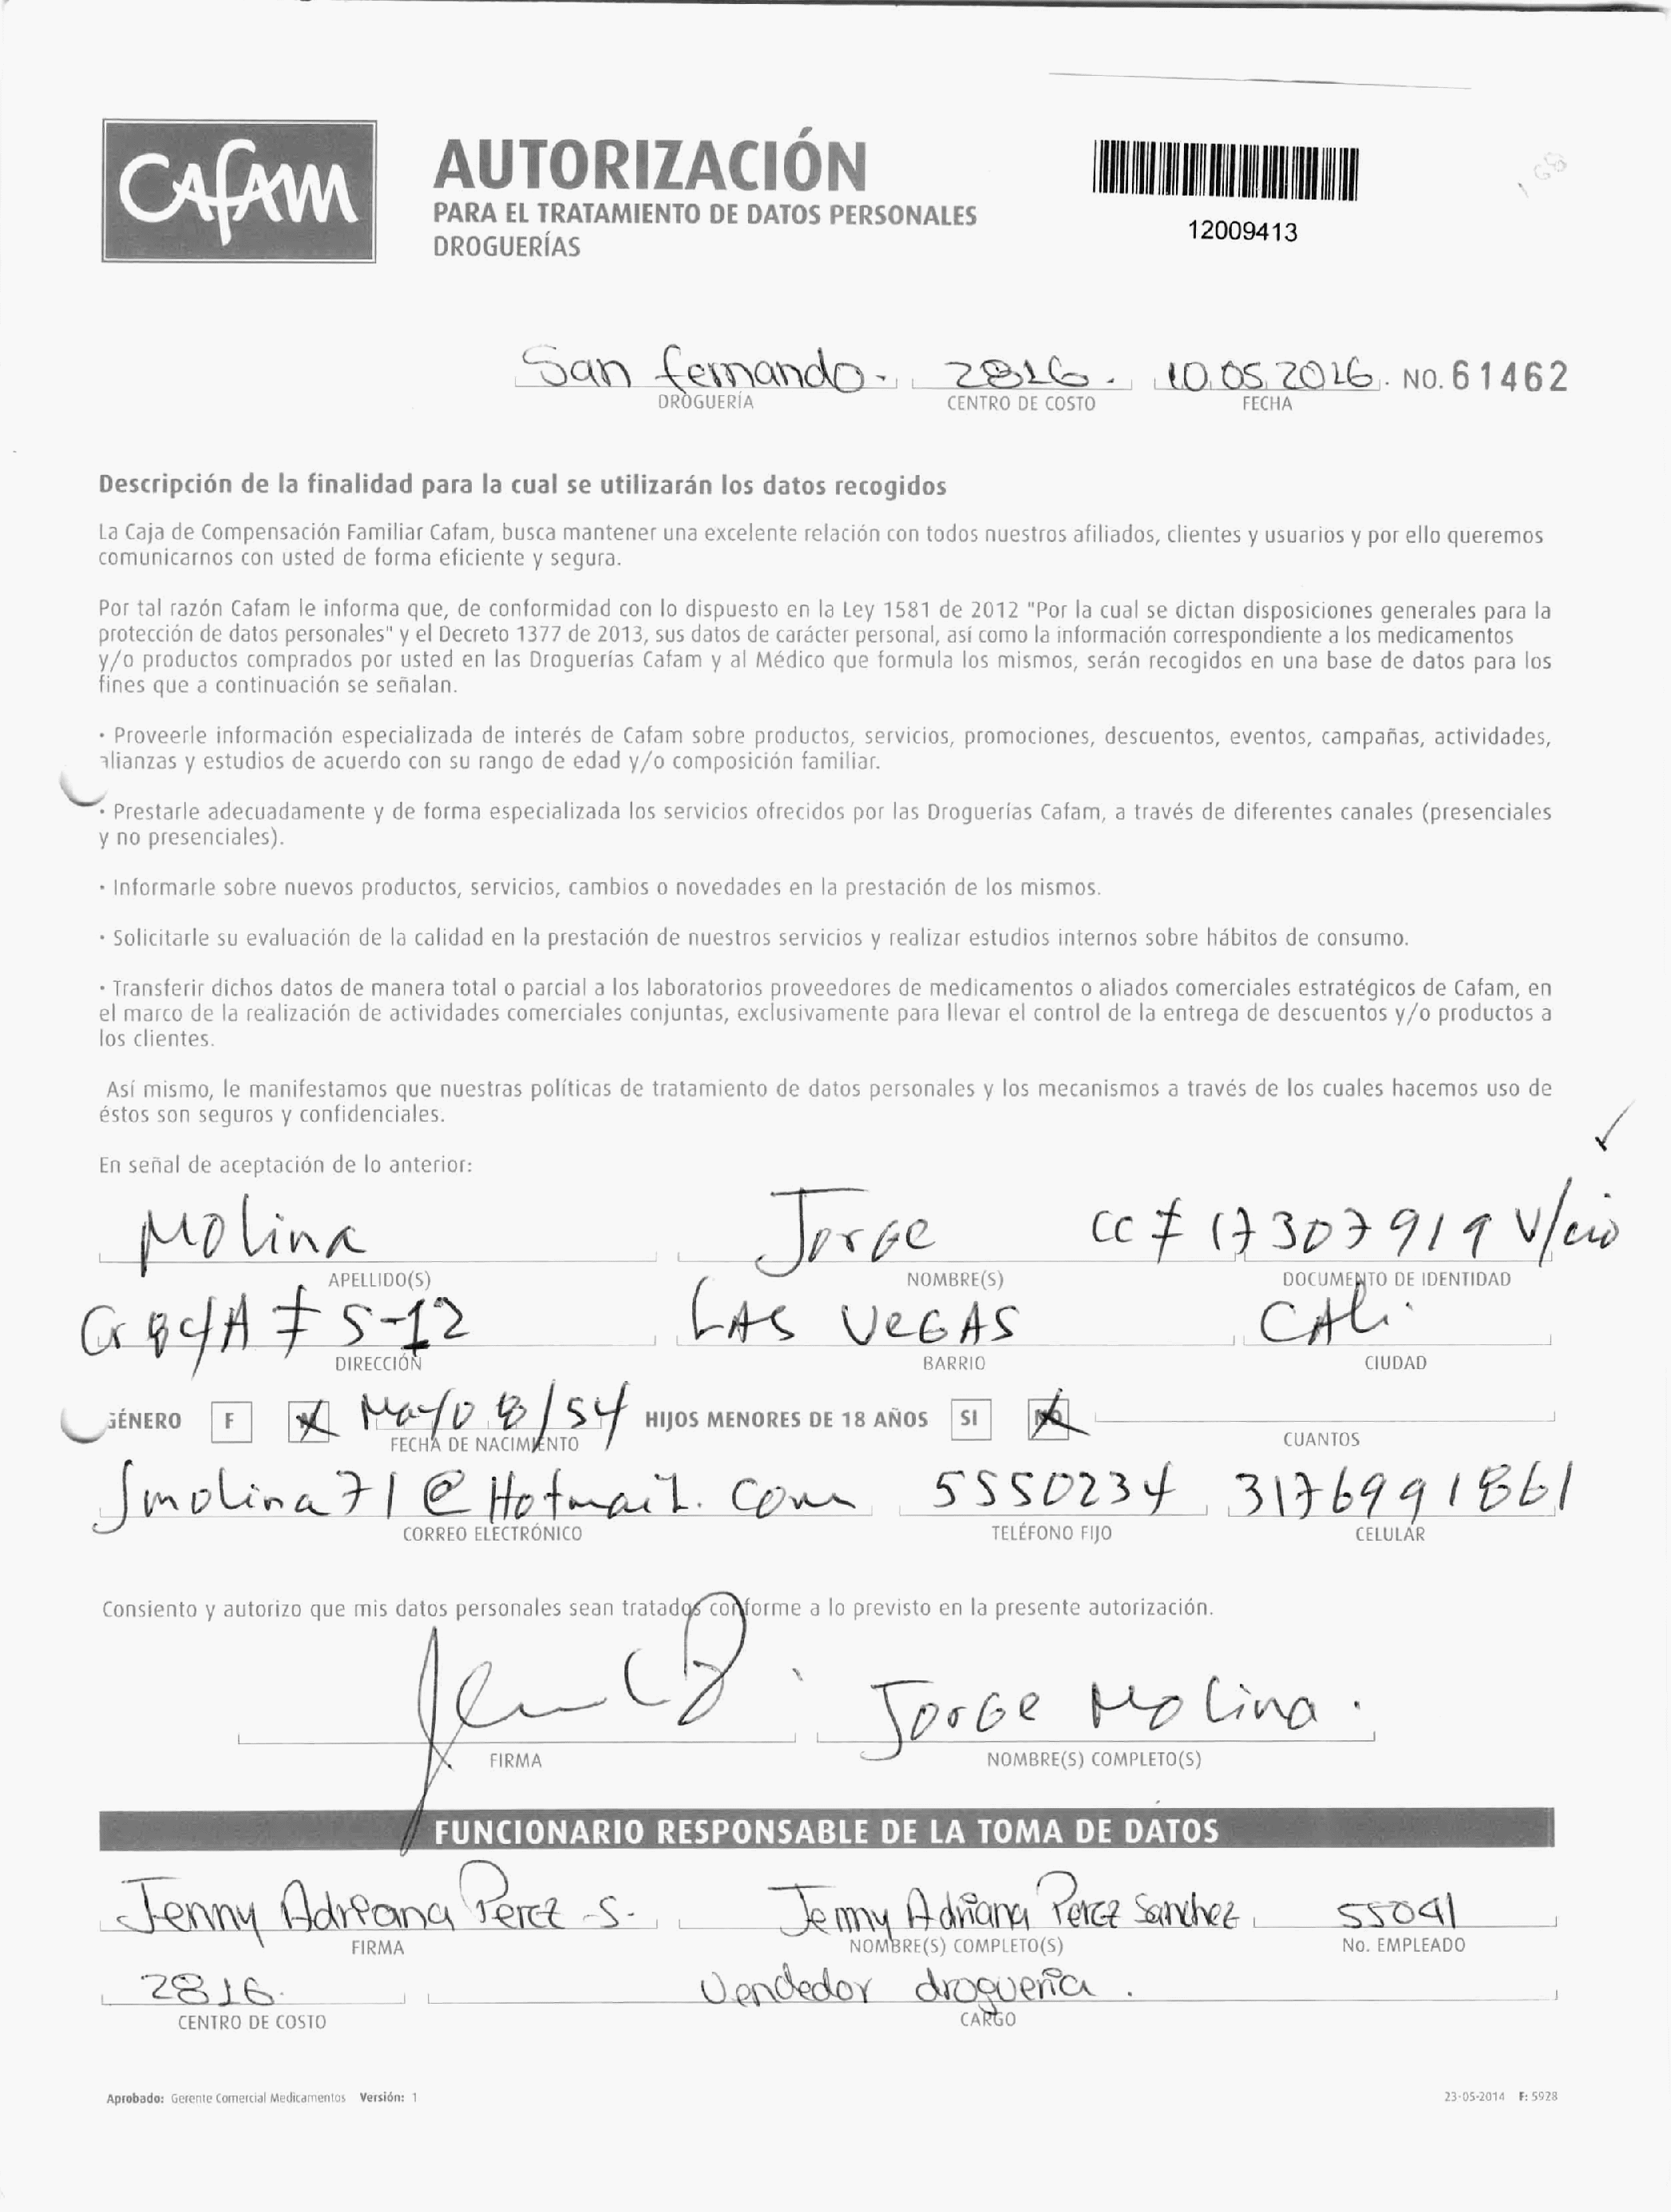 CAFAM
AUTORIZACIÓN
PARA EL TRATAMIENTO DE DATOS PERSONALES
DROGUERÍAS
12009413
San fernando. 2816. 10.05.2016. NO. 61462
DROGUERÍA CENTRO DE COSTO FECHA
Descripción de la finalidad para la cual se utilizarán los datos recogidos
La Caja de Compensación Familiar Cafam, busca mantener una excelente relación con todos nuestros afiliados, clientes y usuarios y por ello queremos
comunicarnos con usted de forma eficiente y segura.
Por tal razón Cafam le informa que, de conformidad con lo dispuesto en la Ley 1581 de 2012 "Por la cual se dictan disposiciones generales para la
protección de datos personales" y el Decreto 1377 de 2013, sus datos de carácter personal, así como la información correspondiente a los medicamentos
y/o productos comprados por usted en las Droguerías Cafam y al Médico que formula los mismos, serán recogidos en una base de datos para los
fines que a continuación se señalan.
· Proveerle información especializada de interés de Cafam sobre productos, servicios, promociones, descuentos, eventos, campañas, actividades,
alianzas y estudios de acuerdo con su rango de edad y/o composición familiar.
· Prestarle adecuadamente y de forma especializada los servicios ofrecidos por las Droguerías Cafam, a través de diferentes canales (presenciales
y no presenciales).
· Informarle sobre nuevos productos, servicios, cambios o novedades en la prestación de los mismos.
· Solicitarle su evaluación de la calidad en la prestación de nuestros servicios y realizar estudios internos sobre hábitos de consumo.
· Transferir dichos datos de manera total o parcial a los laboratorios proveedores de medicamentos o aliados comerciales estratégicos de Cafam, en
el marco de la realización de actividades comerciales conjuntas, exclusivamente para llevar el control de la entrega de descuentos y/o productos a
los clientes.
Así mismo, le manifestamos que nuestras políticas de tratamiento de datos personales y los mecanismos a través de los cuales hacemos uso de
éstos son seguros y confidenciales.
En señal de aceptación de lo anterior:
Molina Jorge CC # 17307919 V/cio
APELLIDO(S) NOMBRE(S) DOCUMENTO DE IDENTIDAD
# 5-12 LAS VEGAS CALi
DIRECCIÓN BARRIO CIUDAD
GÉNERO F M Mayo 8/54 HIJOS MENORES DE 18 AÑOS SI NO
FECHA DE NACIMIENTO CUANTOS
Jmolina71@Hotmail.com 5550234 3176991861
CORREO ELECTRÓNICO TELÉFONO FIJO CELULAR
Consiento y autorizo que mis datos personales sean tratados conforme a lo previsto en la presente autorización.
Jorge Molina.
FIRMA NOMBRE(S) COMPLETO(S)
FUNCIONARIO RESPONSABLE DE LA TOMA DE DATOS
Jenny Adriana Perez S. Jenny Adriana Perez Sanchez 55041
FIRMA NOMBRE(S) COMPLETO(S) No. EMPLEADO
2816. Vendedor droguería.
CENTRO DE COSTO CARGO
Aprobado: Gerente Comercial Medicamentos Versión: 1 23-05-2014 F: 5928